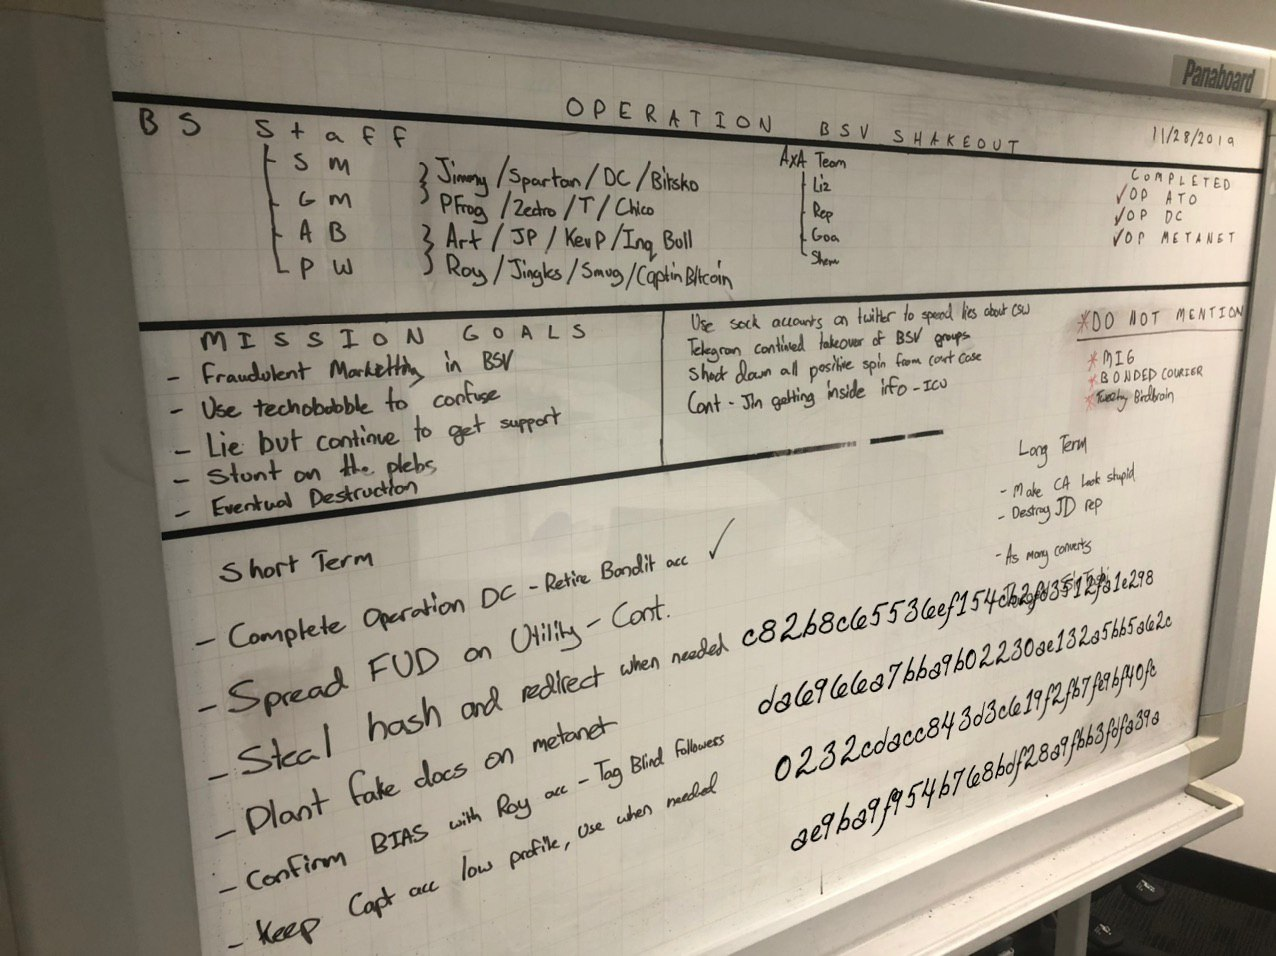 Panaboard
OPERATION BSV SHAKEOUT
11/28/2019
BS Staff
SM
GM
AB
PW
Jimmy/Spartan/DC/Bitsko
PFrog/Zectro/T/Chico
Art/JP/KevP/Inq Bull
Roy/Jingles/Smug/CaptinBitcoin
AxA Team
Liz
Rep
Goa
Shem
COMPLETED
✓OP ATO
✓OP DC
✓OP METANET
MISSION GOALS
- Fraudulent Marketting in BSV
- Use techobabble to confuse
- Lie but continue to get support
- Stunt on the plebs
- Eventual Destruction
Use sock accounts on twitter to spend lies about CSW
Telegram continued takeover of BSV groups
Shoot down all positive spin from court case
Cont - Jin getting inside info - ICU
*DO NOT MENTION
*MI6
*BONDED COURIER
*Tweety Birdbrain
Short Term
- Complete Operation DC - Retire Bandit acc ✓
- Spread FUD on Utility - Cont.
- Steal hash and redirect when needed
- Plant fake docs on metanet
- Confirm BIAS with Roy acc - Tag Blind followers
- Keep Capt acc low profile, Use when needed
Long Term
- Make CA look stupid
- Destroy JD rep
- As many converts
c82b8c6e5536eef154cb2fd3512fa1e298
da696e6a7bba9b02230ae132a5bb5a6e2c
0232cdacc843d3c6e19f2fb7fe9bf40fc
ae9ba9f954b76e8bdf28a9fbb3fdfa39a